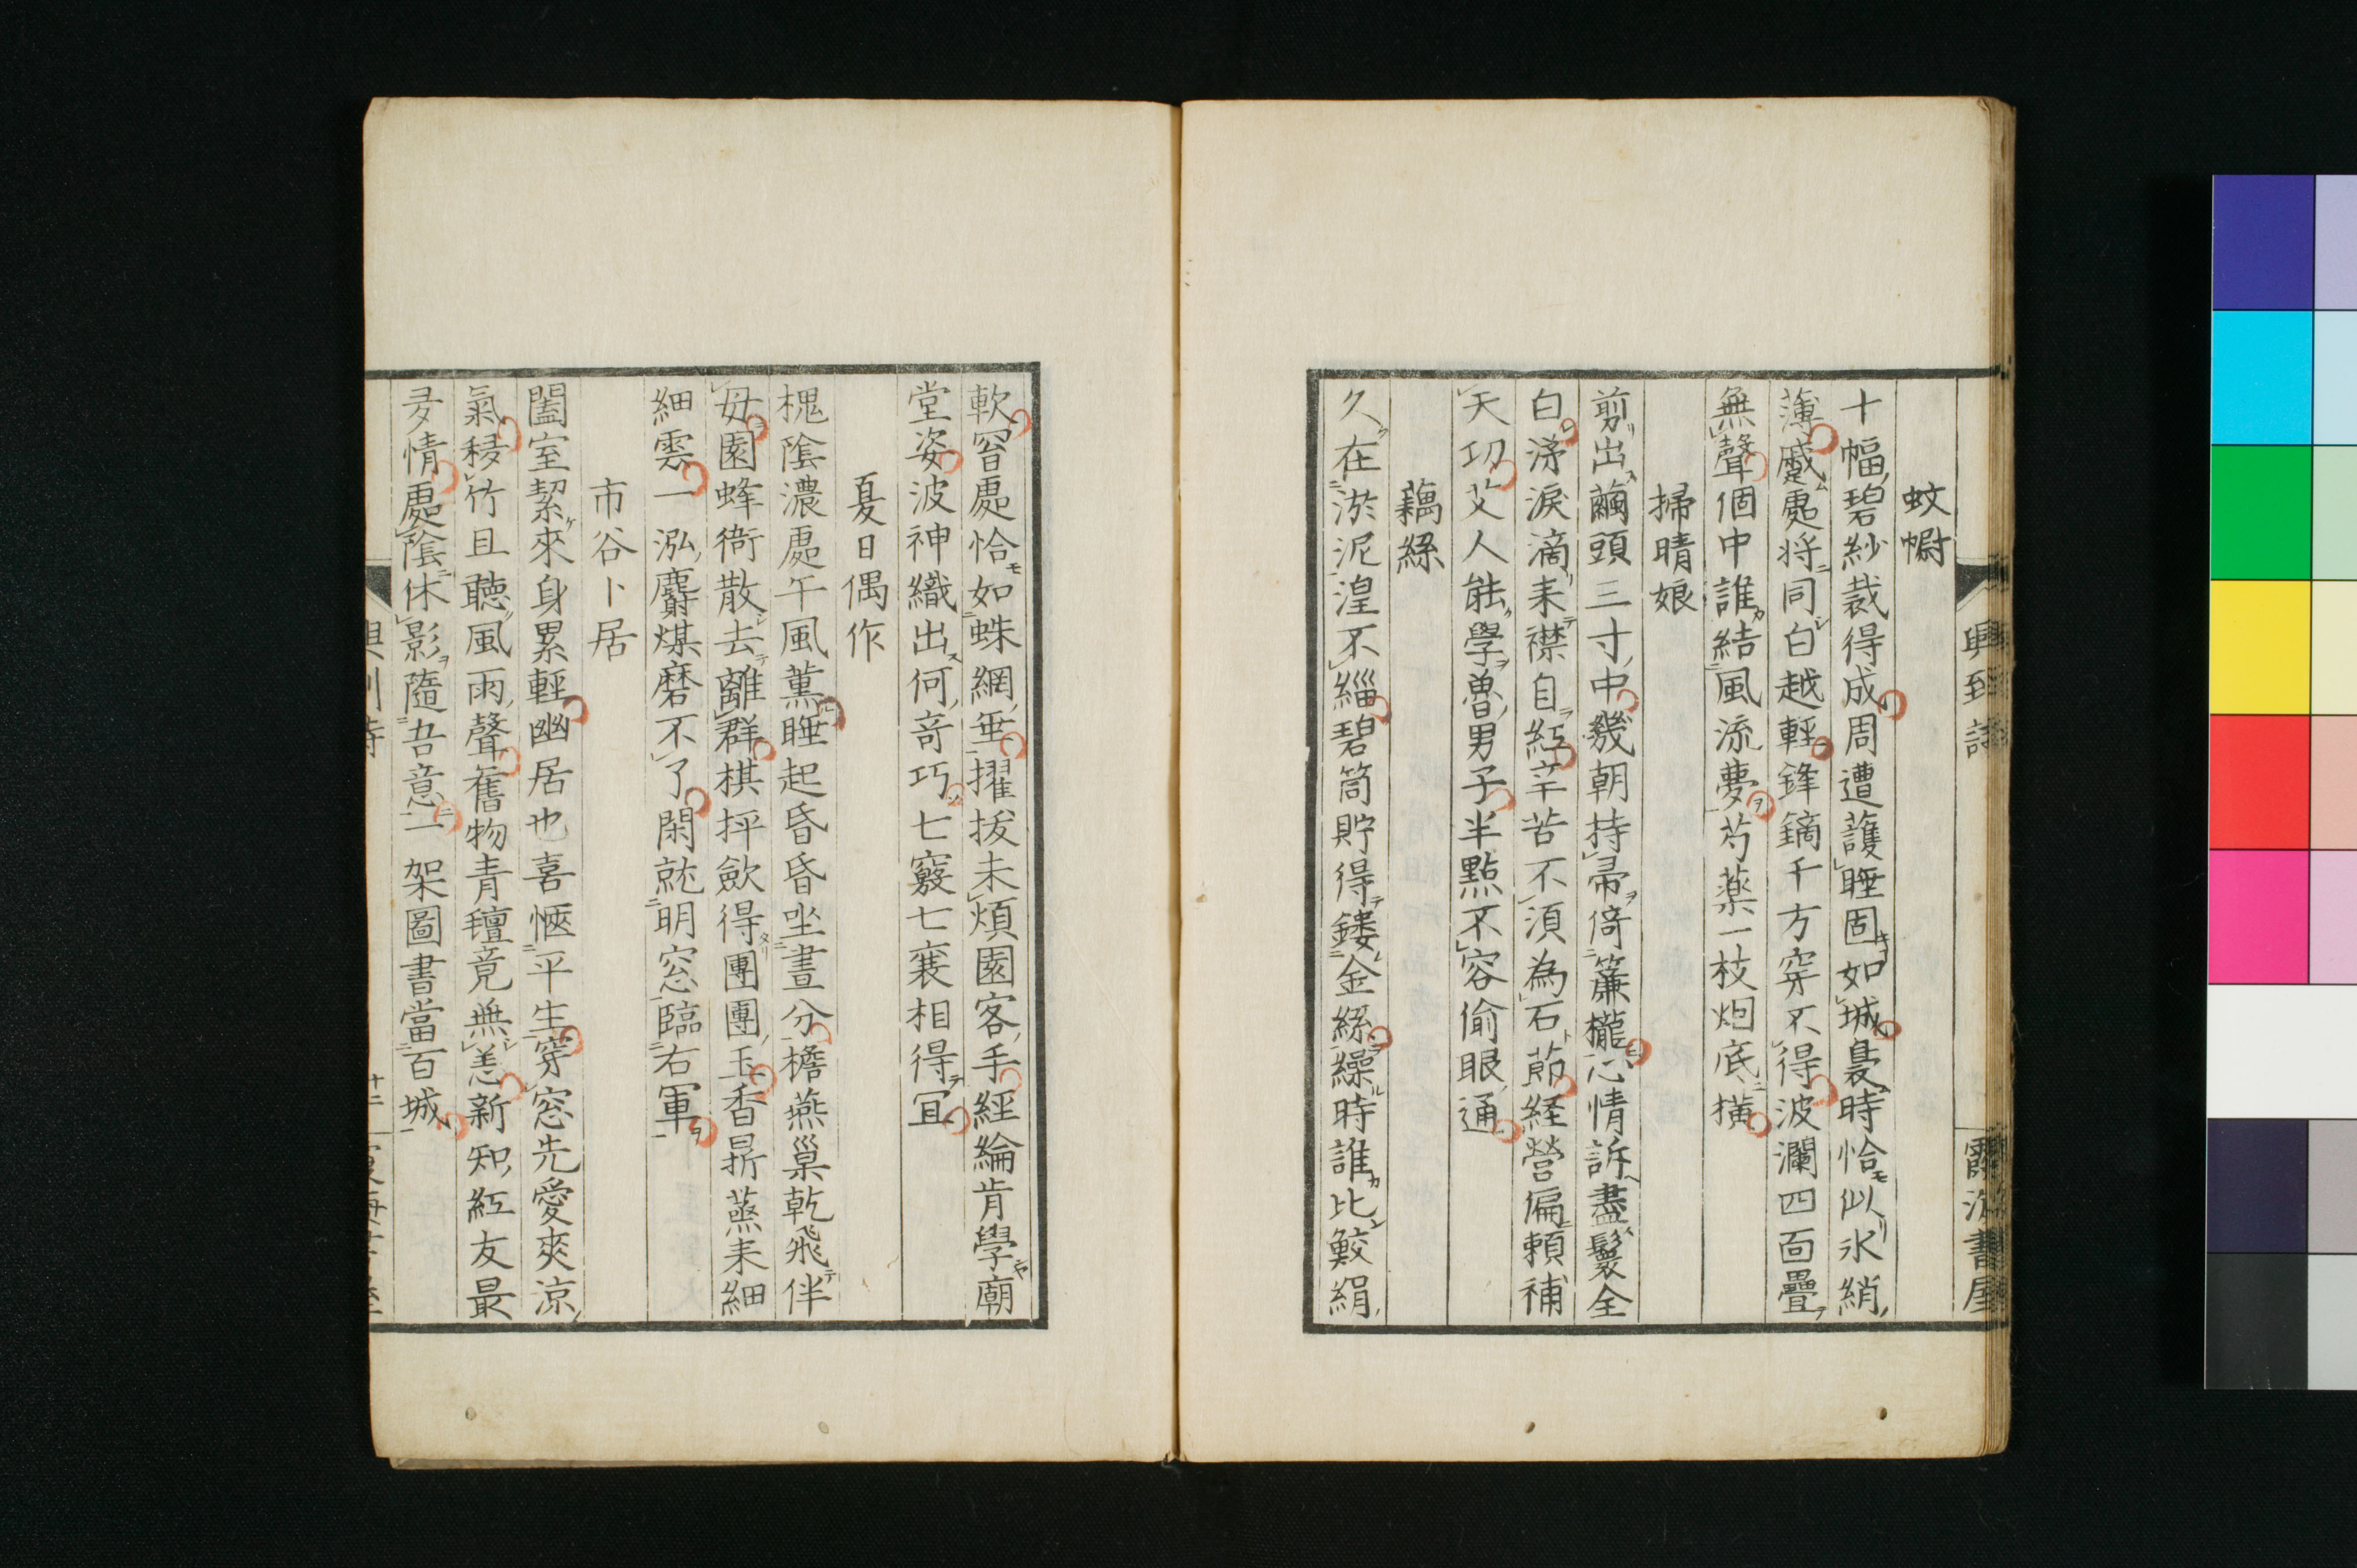 蚊幮
十幅碧紗裁得成周遭護睡固如城夏時恰似氷綃
薄蹙處將同白越輕鋒鏑千方穿不得波瀾四面疊
無聲個中誰結風流夢芍薬一枝炮底橫
掃晴娘
剪出繭頭三寸中幾朝持帚倚簾櫳心情訴盡鬟全
白涕淚滴来襟自紅辛苦不須為石節経營偏頼補
天功艾人能學魯男子半點不容偷眼通
藕絲
久在淤泥湼不緇碧筒貯得鏤金絲繰時誰比鮫絹
軟罶處恰如蛛網垂擢拔未煩園客手經綸肯學廟
堂姿波神織出何竒巧七竅七襄相得宜
夏日偶作
槐陰濃處午風薫睡起昏昏坐晝分檐燕巢乾飛伴
母園蜂衙散去離群棋抨歛得團團玉香𣂺蒸来細
細雲一泓麝煤磨不了閑就明窓臨右軍
市谷卜居
闔室絜來身累輕幽居也喜愜平生穿窓先愛爽凉
氣移竹且聴風雨聲舊物青氊竟無恙新知紅友最
多情處陰休影隨吾意一架圖書當百城